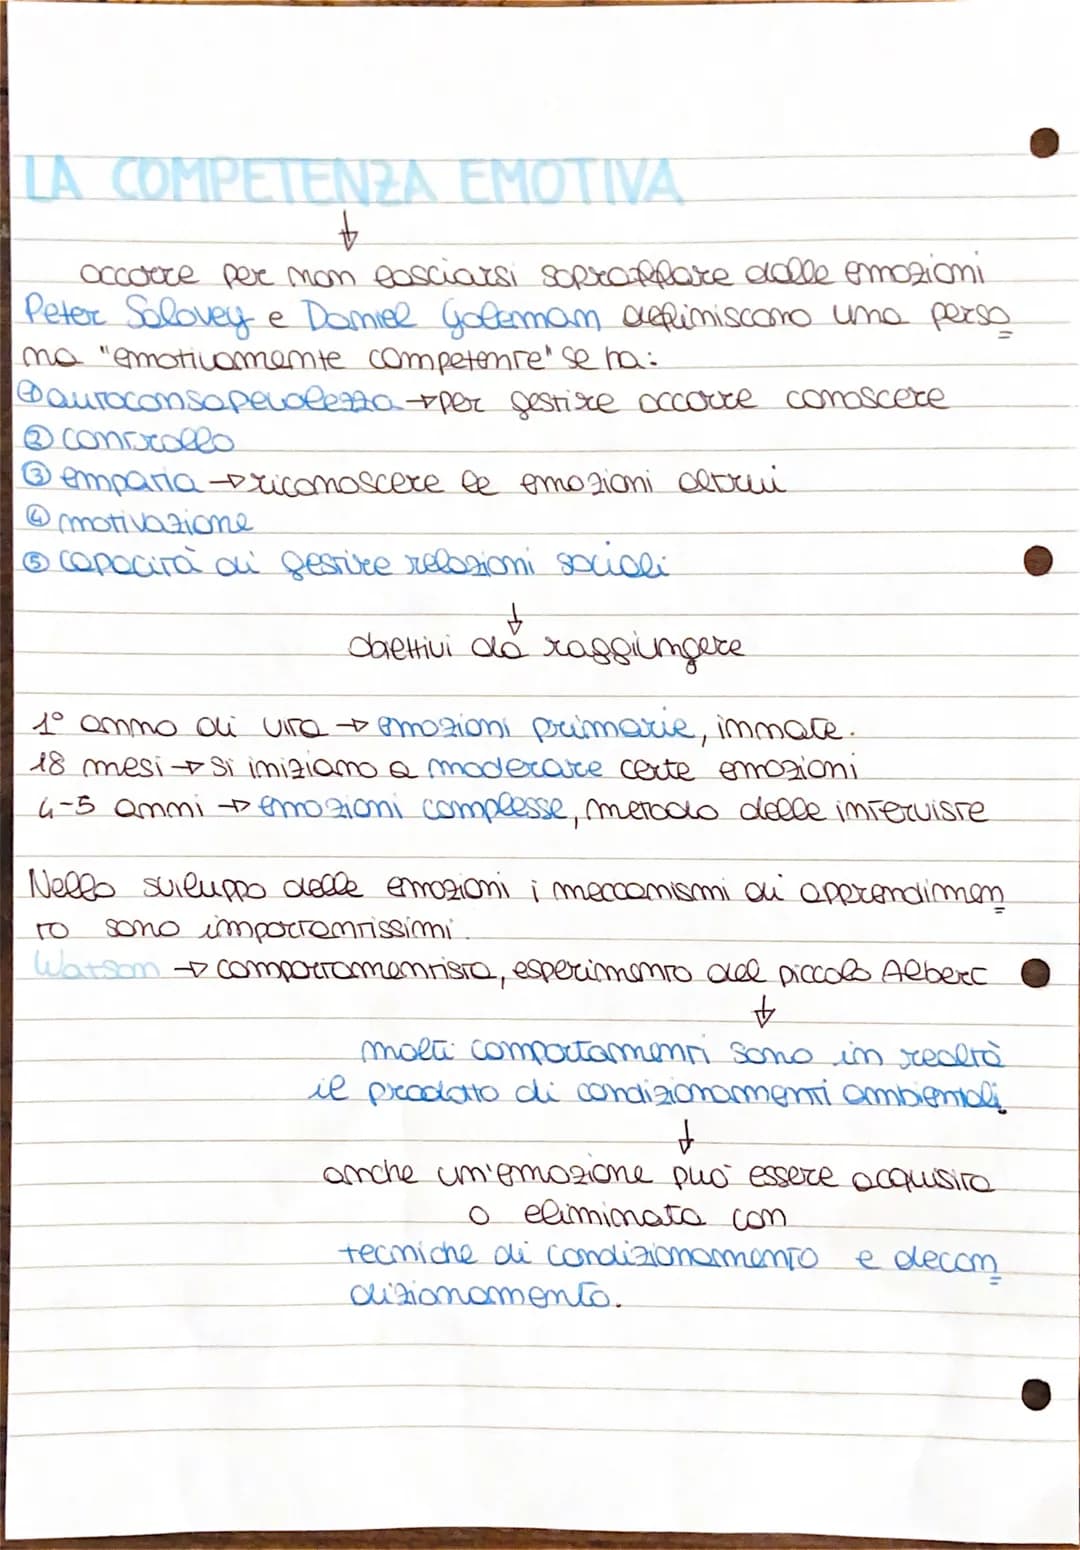 LA COMPETENZA EMOTIVA
↓
occorre per non lasciarsi sopraffare dalle emozioni
Peter Salovey e Daniel Goleman definiscono una perso
na "emotivamente competente" se ha:
① autoconsapevolezza → per gestire occorre conoscere
② controllo
③ empatia → riconoscere le emozioni altrui
④ motivazione
⑤ capacità di gestire relazioni sociali
↓
obiettivi da raggiungere
1° anno di vita → emozioni primarie, innate.
18 mesi → si iniziano a moderare certe emozioni
4-5 anni → emozioni complesse, metodo delle interviste
Nello sviluppo delle emozioni i meccanismi di apprendimen
to sono importantissimi.
Watson → comportamentista, esperimento del piccolo Albert
↓
molti comportamenti sono in realtà
il prodotto di condizionamenti ambientali
↓
anche un'emozione può essere acquisita
o eliminata con
tecniche di condizionamento e decon
dizionamento.